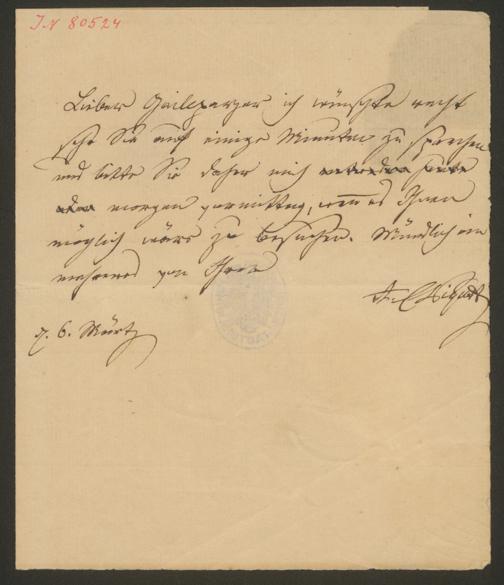 I.N 80524
Lieber Grillparzer ich wünschte recht
sehr Sie auf einige Minuten zu sprechen
und bitte Sie daher mich entweder heute
oder morgen vormittag, wenn es Ihnen
möglich wäre zu besuchen. Mündlich ein
mehreres von Ihrem
d. 6. März